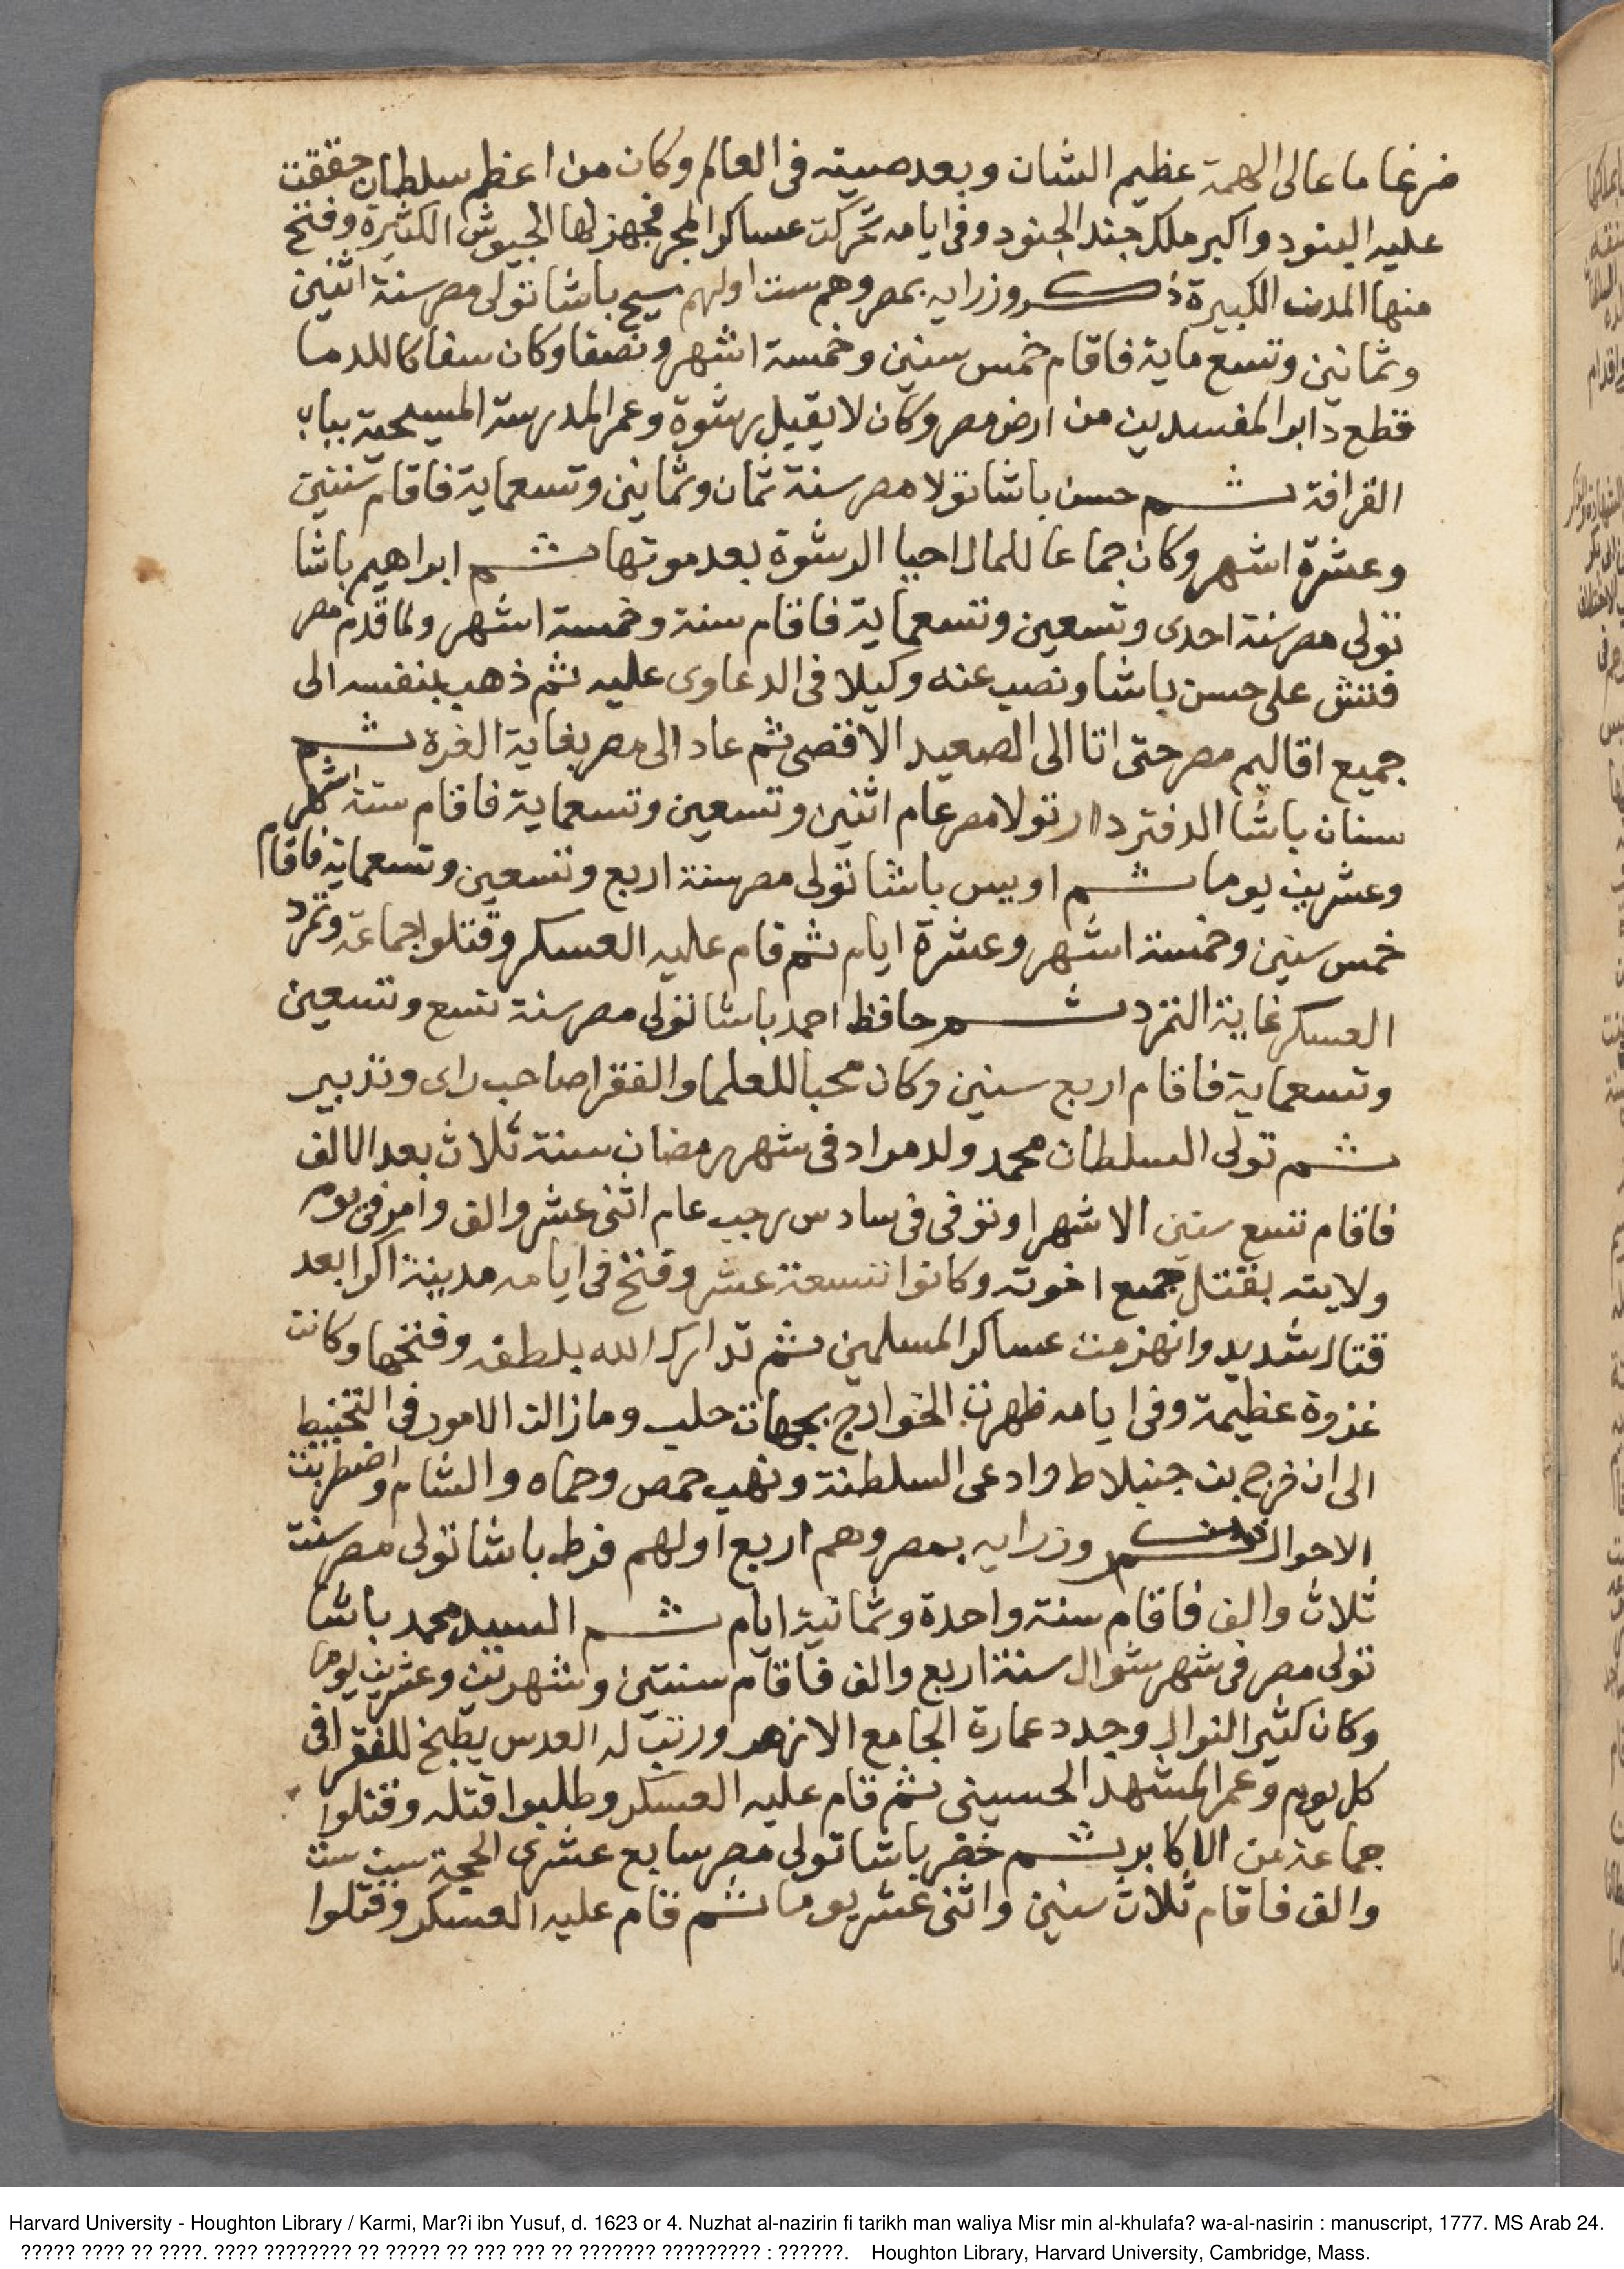 ضرغاما عالى الهمة عظيم الشان وبعد صيته فى العالم وكان من اعظم سلطان حققت
عليه البنود واكبر ملك جند الجنود وفى ايامه تحركت عساكر المجر فجهز لها الجيوش الكثيرة وفتح
منها المدن الكبيرة ذكر وزرايه بمصر وهم ست اولهم مسيح باشا تولى مصر سنة اثنين
وثمانين وتسع ماية فاقام خمس سنين وخمسة اشهر ونصفا وكان سفاكا للدما
قطع دابر المفسدين من ارض مصر وكان لا يقبل رشوة وعمر المدرسة المسيحية بباب
القرافة ثم حسن باشا تولا مصر سنة ثمان وثمانين وتسعماية فاقام سنتين
وعشرة اشهر وكان جماعا للمال احيا الرشوة بعد موتها ثم ابراهيم باشا
تولى مصر سنة احدى وتسعين وتسعماية فاقام سنة وخمسة اشهر ولما قدم مصر
فتش على حسن باشا ونصب عنه وكيلا فى الدعاوى عليه ثم ذهب بنفسه الى
جميع اقاليم مصر حتى اتا الى الصعيد الاقصى ثم عاد الى مصر بغاية العزة ثم
سنان باشا الدفتردار تولا مصر عام اثنين وتسعين وتسعماية فاقام ستة اشهر
وعشرين يوما ثم اويس باشا تولى مصر سنة اربع وتسعين وتسعماية فاقام
خمس سنين وخمسة اشهر وعشرة ايام ثم قام عليه العسكر وقتلوا جماعة وتمرد
العسكر غاية التمرد ثم حافظ احمد باشا تولى مصر سنة تسع وتسعين
وتسعماية فاقام اربع سنين وكان محبا للعلما والفقرا صاحب راى وتدبير
ثم تولى السلطان محمد ولد مراد فى شهر رمضان سنة ثلاث بعد الالف
فاقام تسع سنين الا شهرا وتوفى فى سادس رجب عام اثنى عشر والف وامر فى يوم
ولايته بقتل جميع اخوته وكانوا تسعة عشر وفتح فى ايامه مدينة اكرا بعد
قتال شديد وانهزمت عساكر المسلمين ثم تدارك الله بلطفه وفتحها وكانت
غزوة عظيمة وفى ايامه ظهرت الخوارج بجهات حلب وما زالت الامور فى التخبيط
الى ان خرج بن جنبلاط وادعى السلطنة ونهب حمص وحماه والشام واضطربت
الاحوال ذكر وزرايه بمصر وهم اربع اولهم قرط باشا تولى مصر سنة
ثلاث والف فاقام سنة واحدة وثمانية ايام ثم السيد محمد باشا
تولى مصر فى شهر شوال سنة اربع والف فاقام سنتين وشهرين وعشرين يوما
وكان كثير النوال وجدد عمارة الجامع الازهر ورتب له العدس يطبخ للفقرا فى
كل يوم وعمر المشهد الحسينى ثم قام عليه العسكر وطلبوا قتله وقتلوا
جماعة من الاكابر ثم خضر باشا تولى مصر سابع عشرى الحجة سنة ست
والف فاقام ثلاث سنين واثنى عشر يوما ثم قام عليه العسكر وقتلوا
Harvard University - Houghton Library / Karmi, Mar?i ibn Yusuf, d. 1623 or 4. Nuzhat al-nazirin fi tarikh man waliya Misr min al-khulafa? wa-al-nasirin : manuscript, 1777. MS Arab 24.
????? ???? ?? ????. ???? ???????? ?? ????? ?? ??? ??? ?? ??????? ????????? : ??????. Houghton Library, Harvard University, Cambridge, Mass.